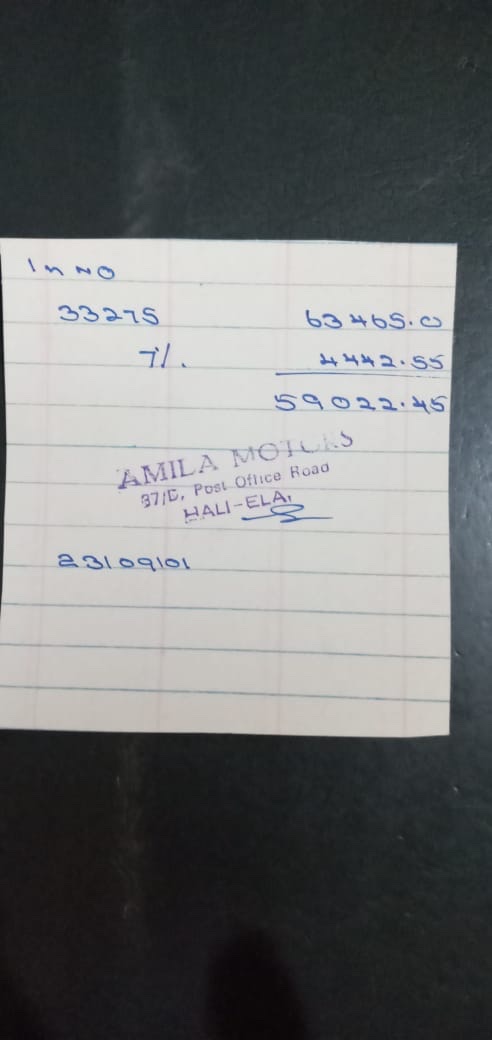 In NO
33275 63465.0
7%. 4442.55
59022.45
AMILA MOTORS
37/D, Post Office Road
HALI-ELA.
23109101